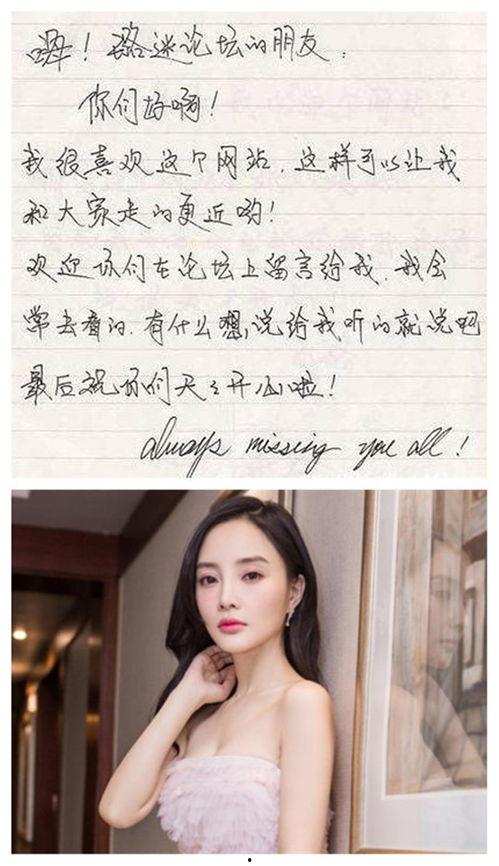 ！璐迷论坛的朋友：
你们好啊！
我很喜欢这个网站，这样可以让我
和大家走的更近哟！
欢迎你们在论坛上留言给我，我会
常去看的，有什么想说给我听的就说吧
最后祝你们天々开心啦！
always missing you all！